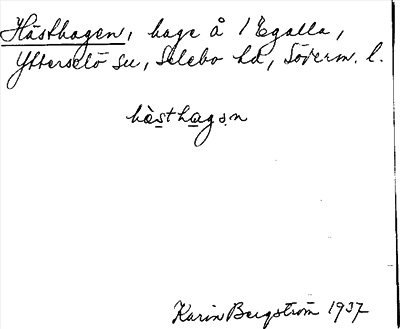 Hästhagen, hage å Ægalla,
Ytterselö sn, Selebo hd, Söderm. l.
hàsthagən
Karin Bergström 1937